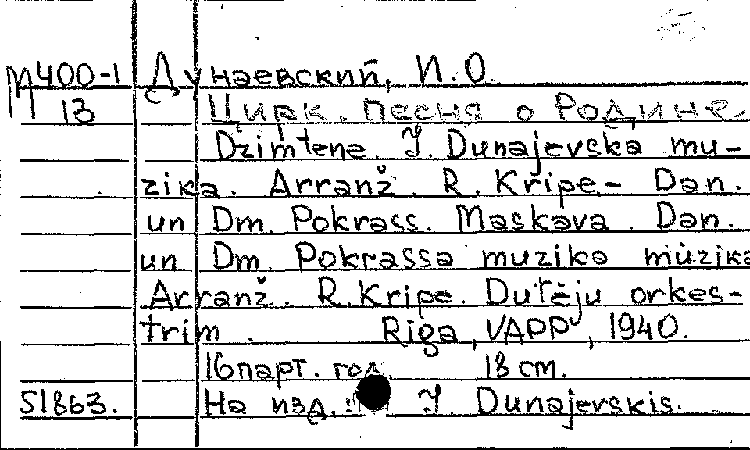 М400-1 Дунаевский, И.О.
13 Цирк. песня о Родине
Dzimtene. J. Dunajevska mu-
zika. Arranž. R. Kripe- Dan.
un Dm. Pokrass. Maskava. Dan.
un Dm. Pokrassa muzika mūzika
Arranž. R. Kripe. Dutēju orkes-
trim. Riga, VAPP, 1940.
16 парт. 18 cm.
51863. На изд.: J Dunajevskis.